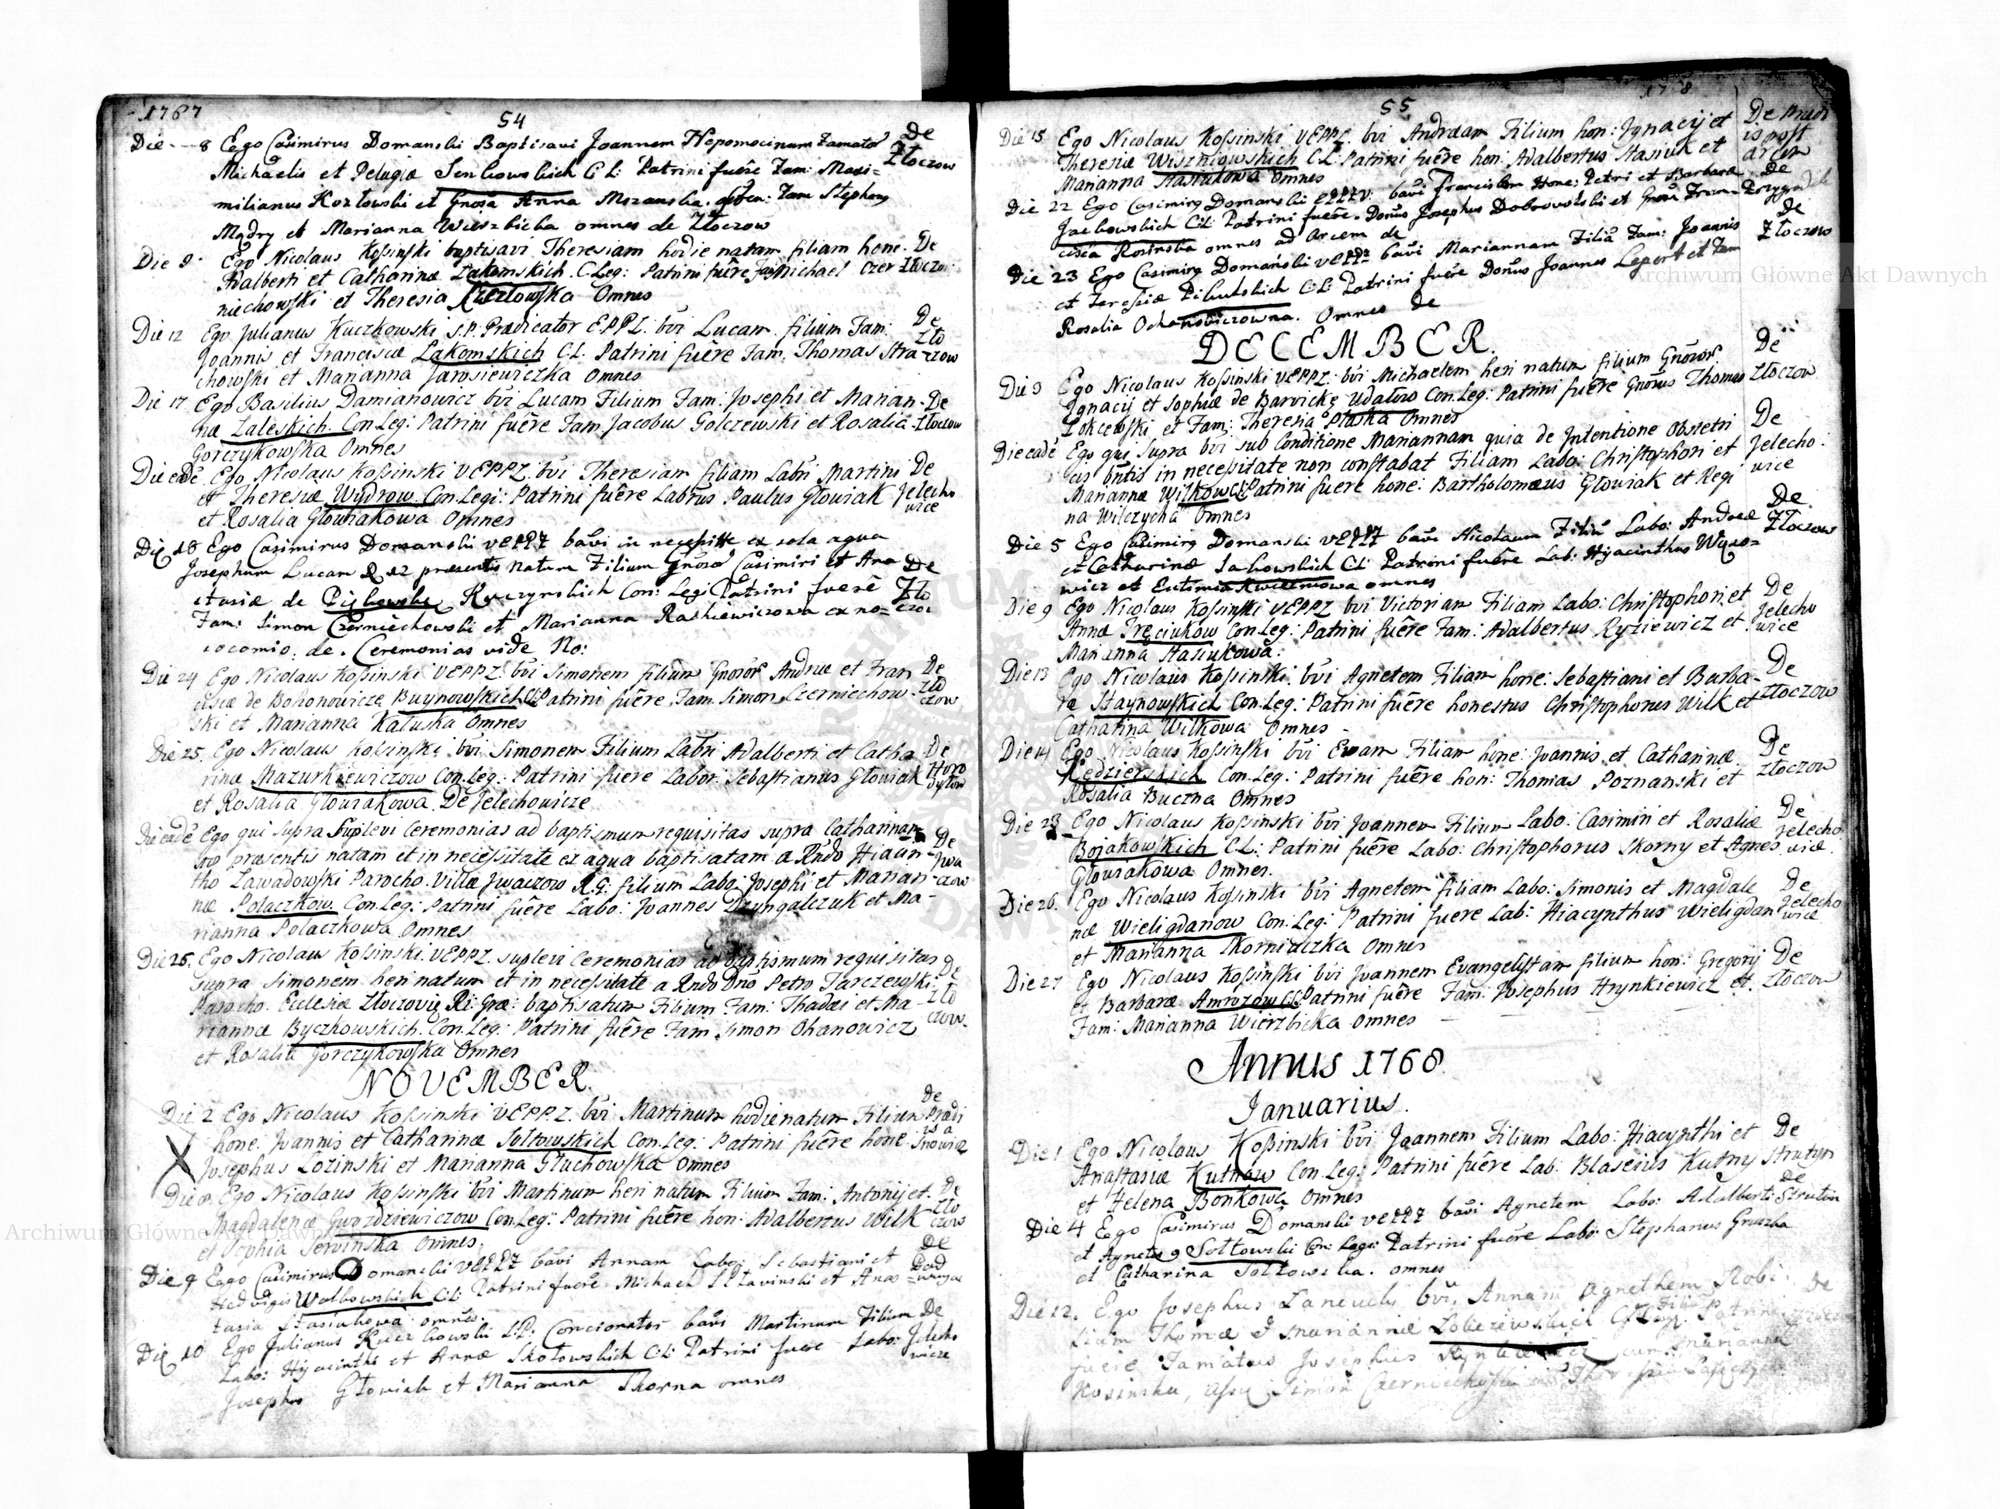 1767
54
Die 8 Ego Casimirus Domanski Baptisavi Joannem Nepomocinum Famator De
Michaelis et Pelagiæ Senkowskich C L: Patrini fuêre Fam: Maxi= Złoczow
milianus Kozłowski et Gnosa Anna Mszanska. Fam Stephanus
Mądry et Marianna Wierzbicka omnes de Złoczow
Die 9 Ego Nicolaus Koſsinſki baptisavi Theresiam hodie natam filiam hone: De
Adalberti et Catharinæ Łakomskich C Leg: Patrini fuêre Fam Michael Czer Złoczow
niechowſki et Theresia Omnes
Die 12 Ego Julianus Kuczkowski S.P. Prædicator EPPZ: bvi Lucam filium Fam: De
Joannis et Franciscæ Łakomskich CL: Patrini fuêre Fam: Thomas Stra Zło
chowſki et Marianna Jarosiewiczka Omnes czow
Die 17 Ego Basilius Damianowicz bvi Lucam Filium Fam: Josephi et Marian De
næ Zaleskich. Con Leg: Patrini fuêre Fam Jacobus Golczewski et Rosalia Złoczow
Gorczykowſka Omnes
Die eâdê Ego Nicolaus Koſsinski VEPPZ: bvi Theresiam filiam Labri Martini De
et Theresiæ Wydrow Con Leg: Patrini fuêre Labrus Paulus Głowiak Jelecho
et Rosalia Głowiakowa Omnes wice
Die 18 Ego Casimirus Domanski VEPPZ bavi in necessitte ex sola aqua
Josephum Lucam præsentis natum Filium Gnoso Casimiri et Ana De
stasiæ de Ruczynskich Con: Leg Patrini fuerê Zło
Fam: Simon Czerniechowski et Marianna Raskiewiczowa ex no= czow
cocomio: de. Ceremonias vide No:
Die 24 Ego Nicolaus Koſsinski VEPPZ: bvi Simonem filium Gnosor Andreæ et Fran De
ciscæ de Bohonowicze Buynowſkich CL Patrini fuêre Fam: Simon Czerniechow Zło
ski et Marianna Kaluska Omnes czow
Die 25. Ego Nicolaus Koſsinſki bvi Simonem Filium Labri Adalberti et Catha De
rinæ Mazurkiewiczow Con Leg: Patrini fuêre Labor: Sebaſtianus Głowiak Horo
et Rosalia Głowiakowa De Jelechowicze dyłow
Die eâdê Ego qui supra suplevi Ceremonias ad baptismum requisitas supra Catharinam De
præsentis natam et in neceſsitate ex aqua baptisatam a Rndo Hiacin Jwa
tho Zawadowſki Parocho Villæ Jwaczow R.G: filium Labo: Josephi et Marian czow
næ Polaczkow Con Leg: Patrini fuêre Labo: Joannes Dzyngalczuk et Ma
rianna Polaczkowa Omnes
Die 26. Ego Nicolaus Koſsinski VEPPZ suplevi Ceremonias ad baptismum requisitas De
supra Simonem heri natum et in neceſsitate a Rndo Dno Petro Tarczewski Zło
Parocho Eclesiæ Złoczoviæ Ri: Græ: baptisatum Filium Fam: Thadæi et Ma czow
riannæ Byczkowskich. Con Leg: Patrini fuêre Fam Simon Ohanowicz
et Rosalia Gorczykowſka Omnes
NOVEMBER.
Die 2 Ego Nicolaus Koſsinski VEPPZ: bvi Martinum hodie natum Filium De
hone: Joannis et Catharinæ Soltowskich Con Leg: Patrini fuêre hone:
Josephus Lozinski et Marianna Głuchowſka Omnes
Die 8 Ego Nicolaus Koſsinſki bvi Martinum heri natum Filium Fam: Antonij et De
Magdalenæ Gwozdziewiczow Con Leg: Patrini fuêre hon: Adalbertus Wilk Zło
et Sophia Serwinska Omnes. czow
Die 9 Ego Casimirus Domanski VEPPZ bavi Annam Labo: Sebastiani et De
Hedvigis Wołkowskich CL: Patrini fuêrê Michael Sttawinski et Anas
tasia Stasiukowa omnes
Die 10 Ego Julianus Kuczkowski S.P. Concionator bavi Martinum Filium De
Labo: Hyacinthi et Annæ Skotowskich CL: Patrini fuere Labo: Jelecho
Josephus Głowiak et Marianna Skorna omnes wicze
55
Die 15 Ego Nicolaus Koſsinski VEPPZ bvi Andræam Filium hon: Jgnacij et De
Theresiæ Wiszniowskich CL: Patrini fuêre hon: Adalbertus Stasiuk et is post
Marianna Stasiukowa Omnes arcem
Die 22 Ego Casimirus Domanski VEPPZ bavi Franciscum Hone: Petri et Barbaræ De
Jackowskich CL: Patrini fuêre. Donus Josephus Dobrowolski et Gnosa Fran
cisca Rosinska omnes ad Arcem de
Die 23 Ego Casimirus Domański VEPPZ bavi Mariannam Filiâ Fam: Joannis De
et Teresiæ Pikulskich CL: Patrini fuêre Donus Joannes Lepert et Fam Złoczow
Rosalia Ochanowiczowna. Omnes de
DECEMBER.
Die 3 Ego Nicolaus Koſsinski VEPPZ: bvi Michaelem heri natum filium Gnosor De
Jgnacij et Sophiæ de Barwickę Udałow Con Leg: Patrini fuêre Gnosus Thomas Złoczow
Łokcewſki et Fam: Theresia Ptaska Omnes
Die eadê Ego qui supra bvi sub Conditione Mariannam quia de Jntentione Obstetri De
cis bntis in neceſsitate non conſtabat Filiam Labo: Chriſtophori et Jelecho
Mariannæ Wilkow CL Patrini fuere hone: Bartholomæus Głowiak et Regi wice
na Wilczycha Omnes
Die 5 Ego Casimirus Domanski VEPPZ bavi Nicolaum Filiû Labo: Andreæ De
et Catharinæ Jakowskich CL: Patrini fuêre Lab: Hyacinthus Wąso= Złoczow
wicz et Eutimia Kwietniowa omnes
Die 9 Ego Nicolaus Koſsinſki VEPPZ bvi Victoriam Filiam Labo: Chriſtophori et De
Annæ Tręciukow Con Leg: Patrini fuêre Fam: Adalbertus Ryziewicz et Jelecho
Marianna Stasiukowa: wice
Die 13 Ego Nicolaus Koſsinski bvi Agnetem Filiam hone: Sebaſtiani et Barba De
ræ Staynowſkich Con Leg: Patrini fuêre honestus Chriſtophorus Wilk et Złoczow
Catharina Wilkowa Omnes
Die 14 Ego Nicolaus Koſsinſki bvi Evam Filiam hone: Joannis et Catharinæ De
Kędzierskich Con Leg: Patrini fuêre hon: Thomas Poznanski et Złoczow
Rosalia Buczna Omnes
Die 23 Ego Nicolaus Koſsinski bvi Joannem Filium Labo: Casimiri et Rosaliæ De
Bojakowſkich CL: Patrini fuêre Labo: Chriſtophorus Skorny et Agnes Jelecho
Głowiakowa Omnes. wice
Die 26. Ego Nicolaus Koſsinski bvi Agnetem filiam Labo: Simonis et Magdale De
næ Wieligdanow Con Leg: Patrini fuere Lab: Hiacynthus Wieligdan Jelecho
et Marianna Skorniaczka Omnes wice
Die 27 Ego Nicolaus Koſsinſki bvi Joannem Evangeliſtam filium hon: Gregorij De
et Barbaræ Amrozow CL Patrini fuêre Fam: Josephus Hrynkiewicz et Złoczow
Fam: Marianna Wierzbicka Omnes
Annus 1768.
Januarius.
Die 1 Ego Nicolaus Koſsinski bvi Joannem Filium Labo: Hiacynthi et De
Anaſtasiæ Kutnow Con Leg: Patrini fuêre Lab: Blasius Kutny Strutyn
et Helena Bonkowa Omnes
Die 4 Ego Casimirus Domanski VEPPZ bavi Agnetem Labo: Adalberti De Strutin
et Agnetis Sołtowski Con: Leg: Patrini fuêre Labo: Stephanus Gruszka
et Catharina Sołtowska. omnes
Die 12. Ego Josephus bvi. Annam Agnethem De
Thomæ et Mariannæ Patrini
fuêre Famatus Josephus cum Marianna
Kosinska, Simon
Archiwum Główne Akt Dawnych
Archiwum Główne Akt Dawnych